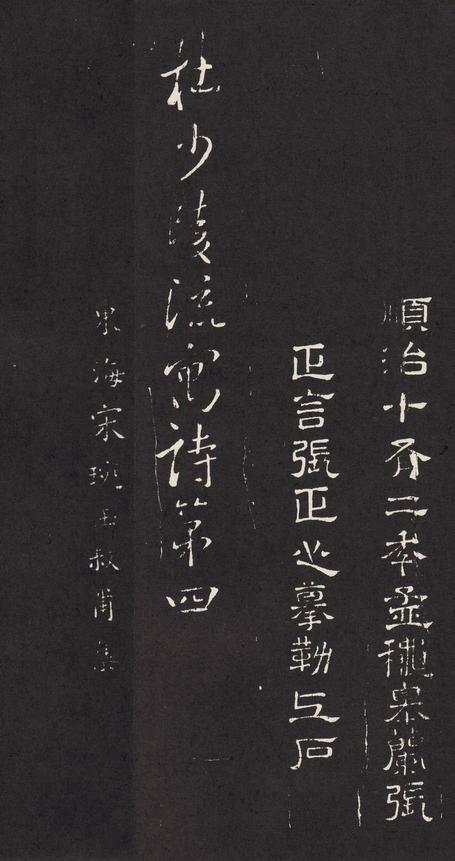 順治十有二年孟穐皋蘭張
正言張正心摹勒上石
杜少陵流寓詩第四
東海宋琬玉叔甫集